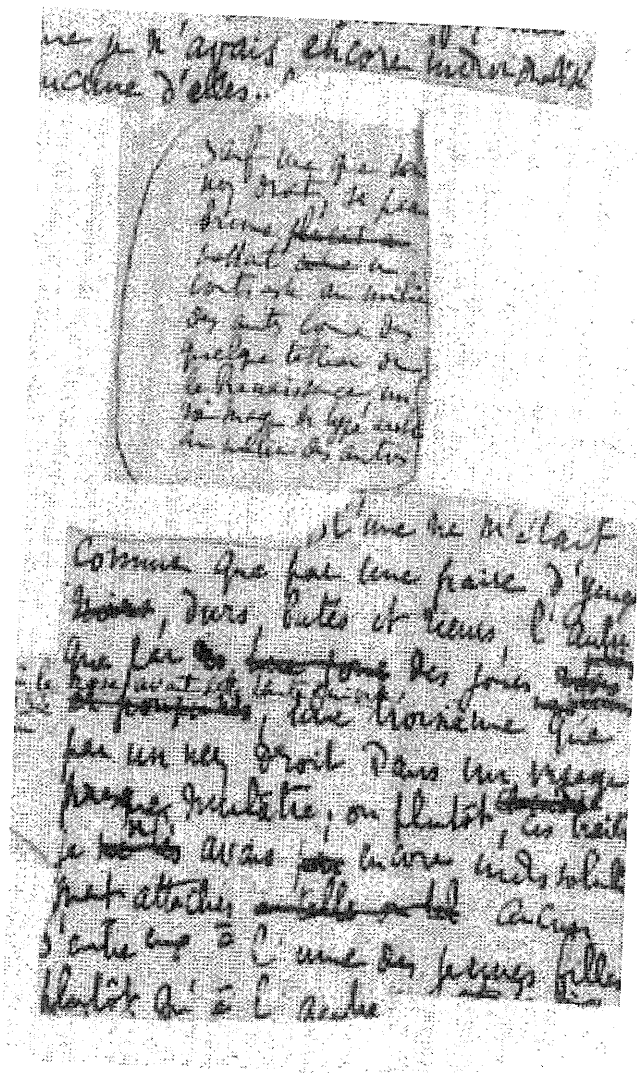 que je n'avais encore individualisé
aucune d'elles..
Sauf une que son
nez droit, sa peau
brune
mettait en
contraste au milieu
des autres comme dans
quelque tableau de
la Renaissance, un
roi mage de type arabe
au milieu des autres
, l'une ne m'était
connue que par une paire d'yeux
durs, butés et rieurs, l'autre
que par des joues
où le rose avait cette teinte cuivrée,
, une troisième que
par un nez droit dans un visage
presque mulâtre; ou plutôt, ces traits
je n'en avais encore indissolublement
attaché aucun
d'entre eux à l'une des jeunes filles
plutôt qu'à l'autre